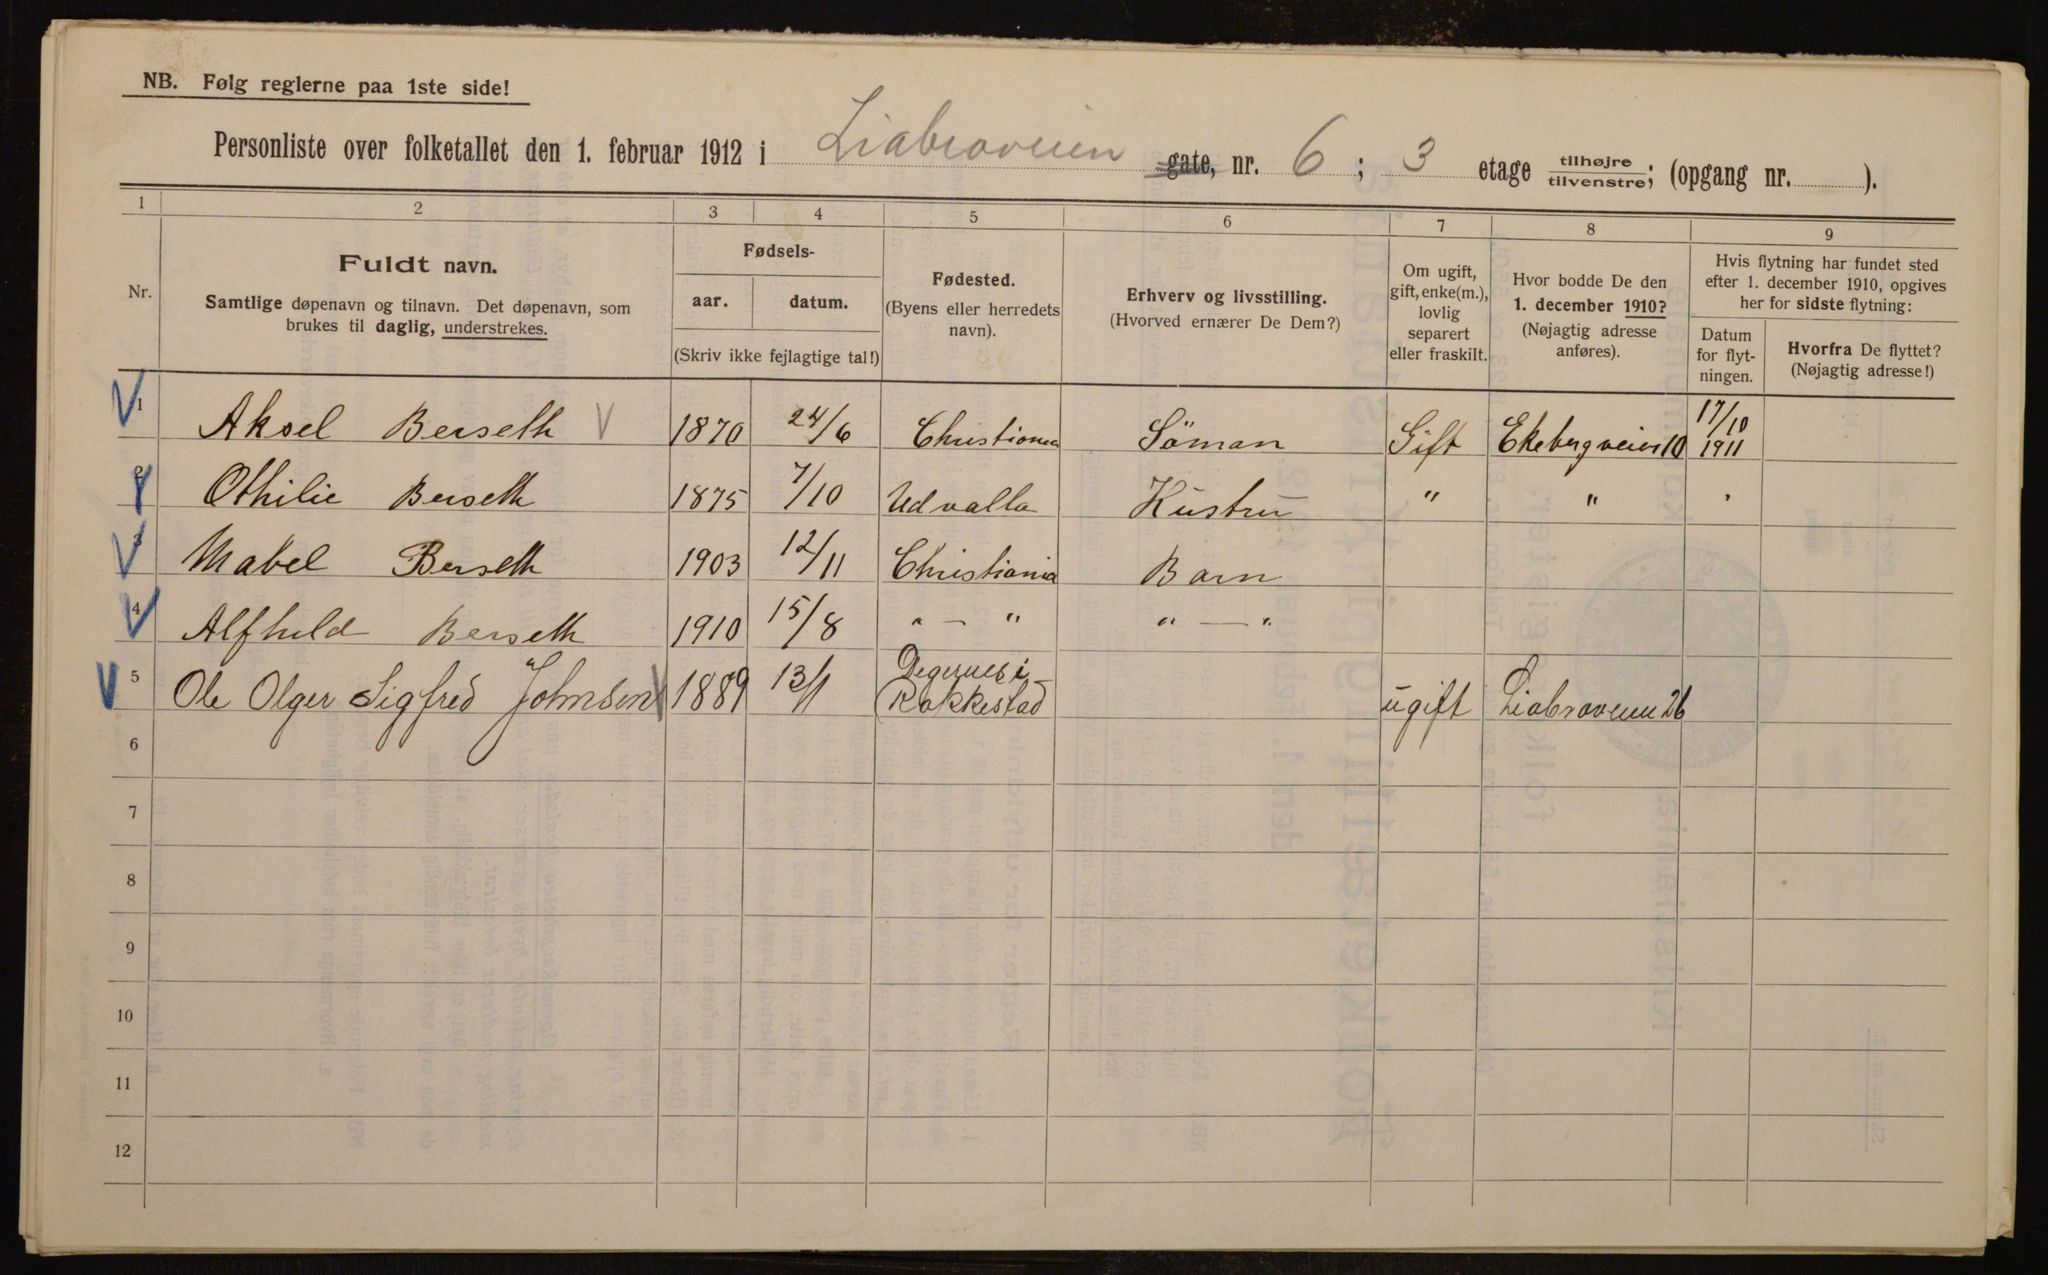 NB. Følg reglerne paa 1ste side!
Personliste over folketallet den 1. februar 1912 i Liabroveien gate, nr. 6 ; 3 etage tilhøjre/tilvenstre; (opgang nr. ).
1 2 3 4 5 6 7 8 9
Nr.
Fuldt navn.
Samtlige døpenavn og tilnavn. Det døpenavn, som
brukes til daglig, understrekes.
Fødsels-
aar. datum.
(Skriv ikke fejlagtige tal!)
Fødested.
(Byens eller herredets
navn).
Erhverv og livsstilling.
(Hvorved ernærer De Dem?)
Om ugift,
gift, enke(m.),
lovlig
separert
eller fraskilt.
Hvor bodde De den
1. december 1910?
(Nøjagtig adresse
anføres).
Hvis flytning har fundet sted
efter 1. december 1910, opgives
her for sidste flytning:
Datum
for flyt-
ningen.
Hvorfra De flyttet?
(Nøjagtig adresse!)
1 Aksel Berseth 1870 24/6 Christiania Söman Gift Ekebergveien 10 17/10 1911
2 Othilie Berseth 1875 7/10 Udvalla Hustru " " "
3 Mabel Berseth 1903 12/11 Christiania Barn
4 Alfhild Berseth 1910 15/8 " — " " — "
5 Ole Olger Sigfred Johnsen 1889 13/1 Degernes i Rakkestad ugift Liabroveien 26
6
7
8
9
10
11
12